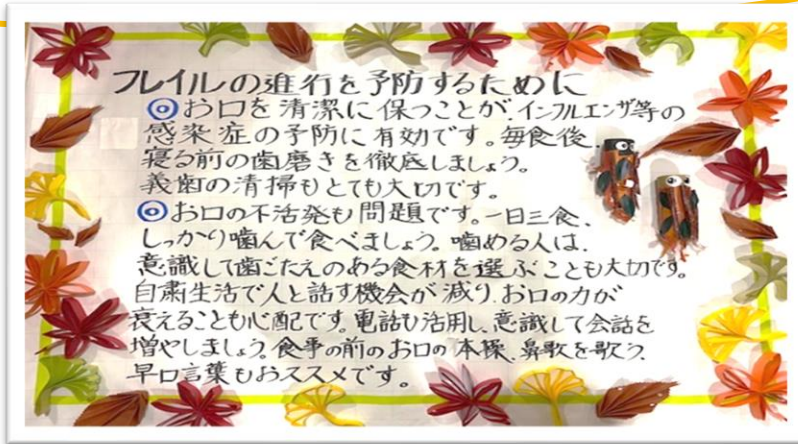 フレイルの進行を予防するために
◎お口を清潔に保つことが、インフルエンザ等の
感染症の予防に有効です。毎食後、
寝る前の歯磨きを徹底しましょう。
義歯の清掃もとても大切です。
◎お口の不活発も問題です。一日三食、
しっかり噛んで食べましょう。噛める人は、
意識して歯ごたえのある食材を選ぶことも大切です。
自粛生活で人と話す機会が減り、お口の力が
衰えることも心配です。電話も活用し、意識して会話を
増やしましょう。食事の前のお口の体操、鼻歌を歌う、
早口言葉もおススメです。